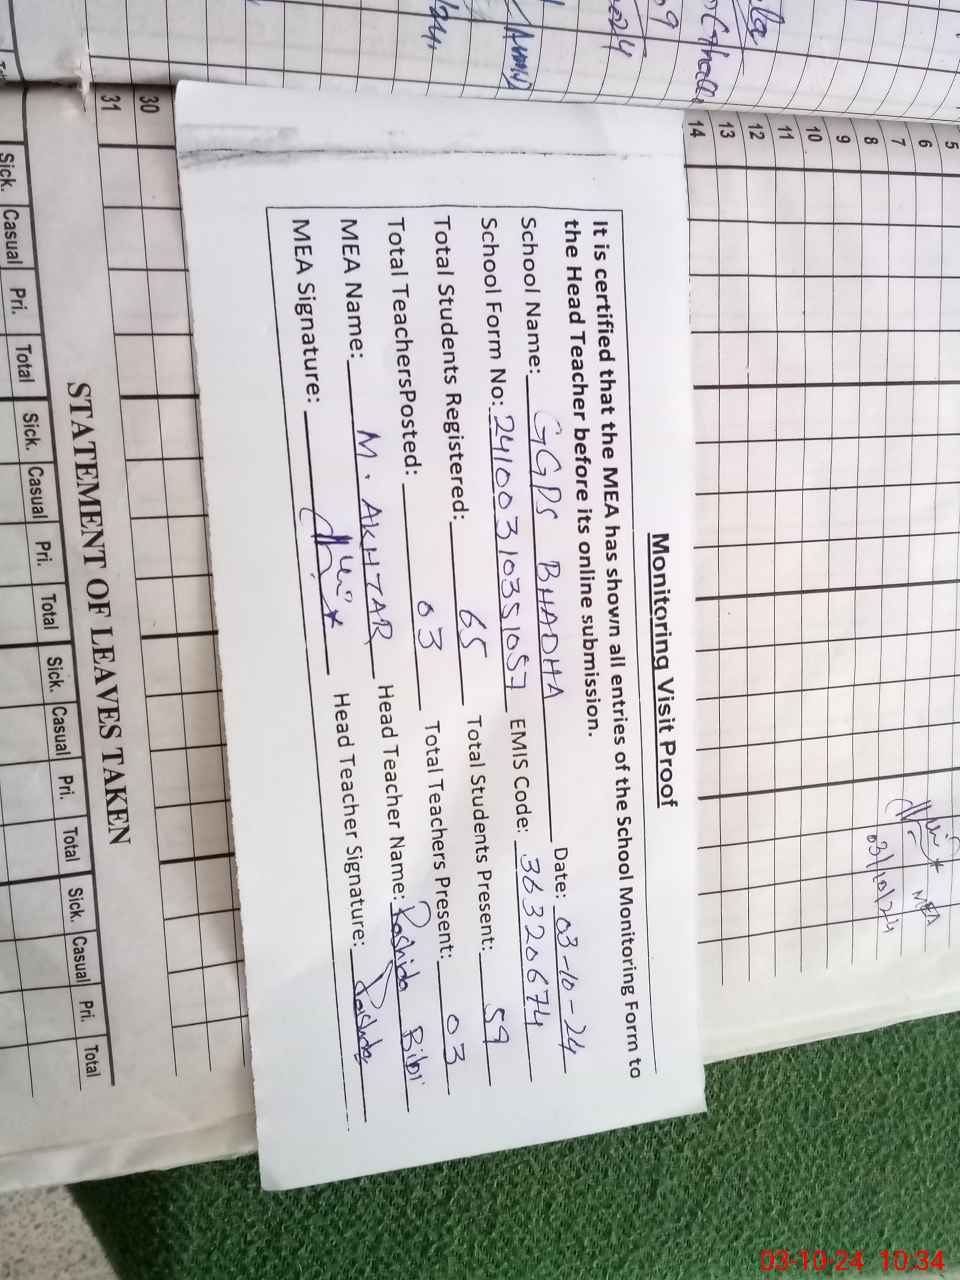 Monitoring Visit Proof
It is certified that the MEA has shown all entries of the School Monitoring Form to
the Head Teacher before its online submission.
School Name: GGPS BHADHA Date: 03-10-24
School Form No: 24100310351057 EMIS Code: 36320674
Total Students Registered: 65 Total Students Present: 59
Total TeachersPosted: 03 Total Teachers Present: 03
MEA Name: M. AKHTAR Head Teacher Name: Rashida Bibi
MEA Signature: Head Teacher Signature: Rashida
5
6
7
8
9
10
11
12
13
14
30
31
MEA
03/10/24
STATEMENT OF LEAVES TAKEN
Sick. Casual Pri. Total Sick. Casual Pri. Total Sick. Casual Pri. Total Sick. Casual Pri. Total
03-10-24 10:34